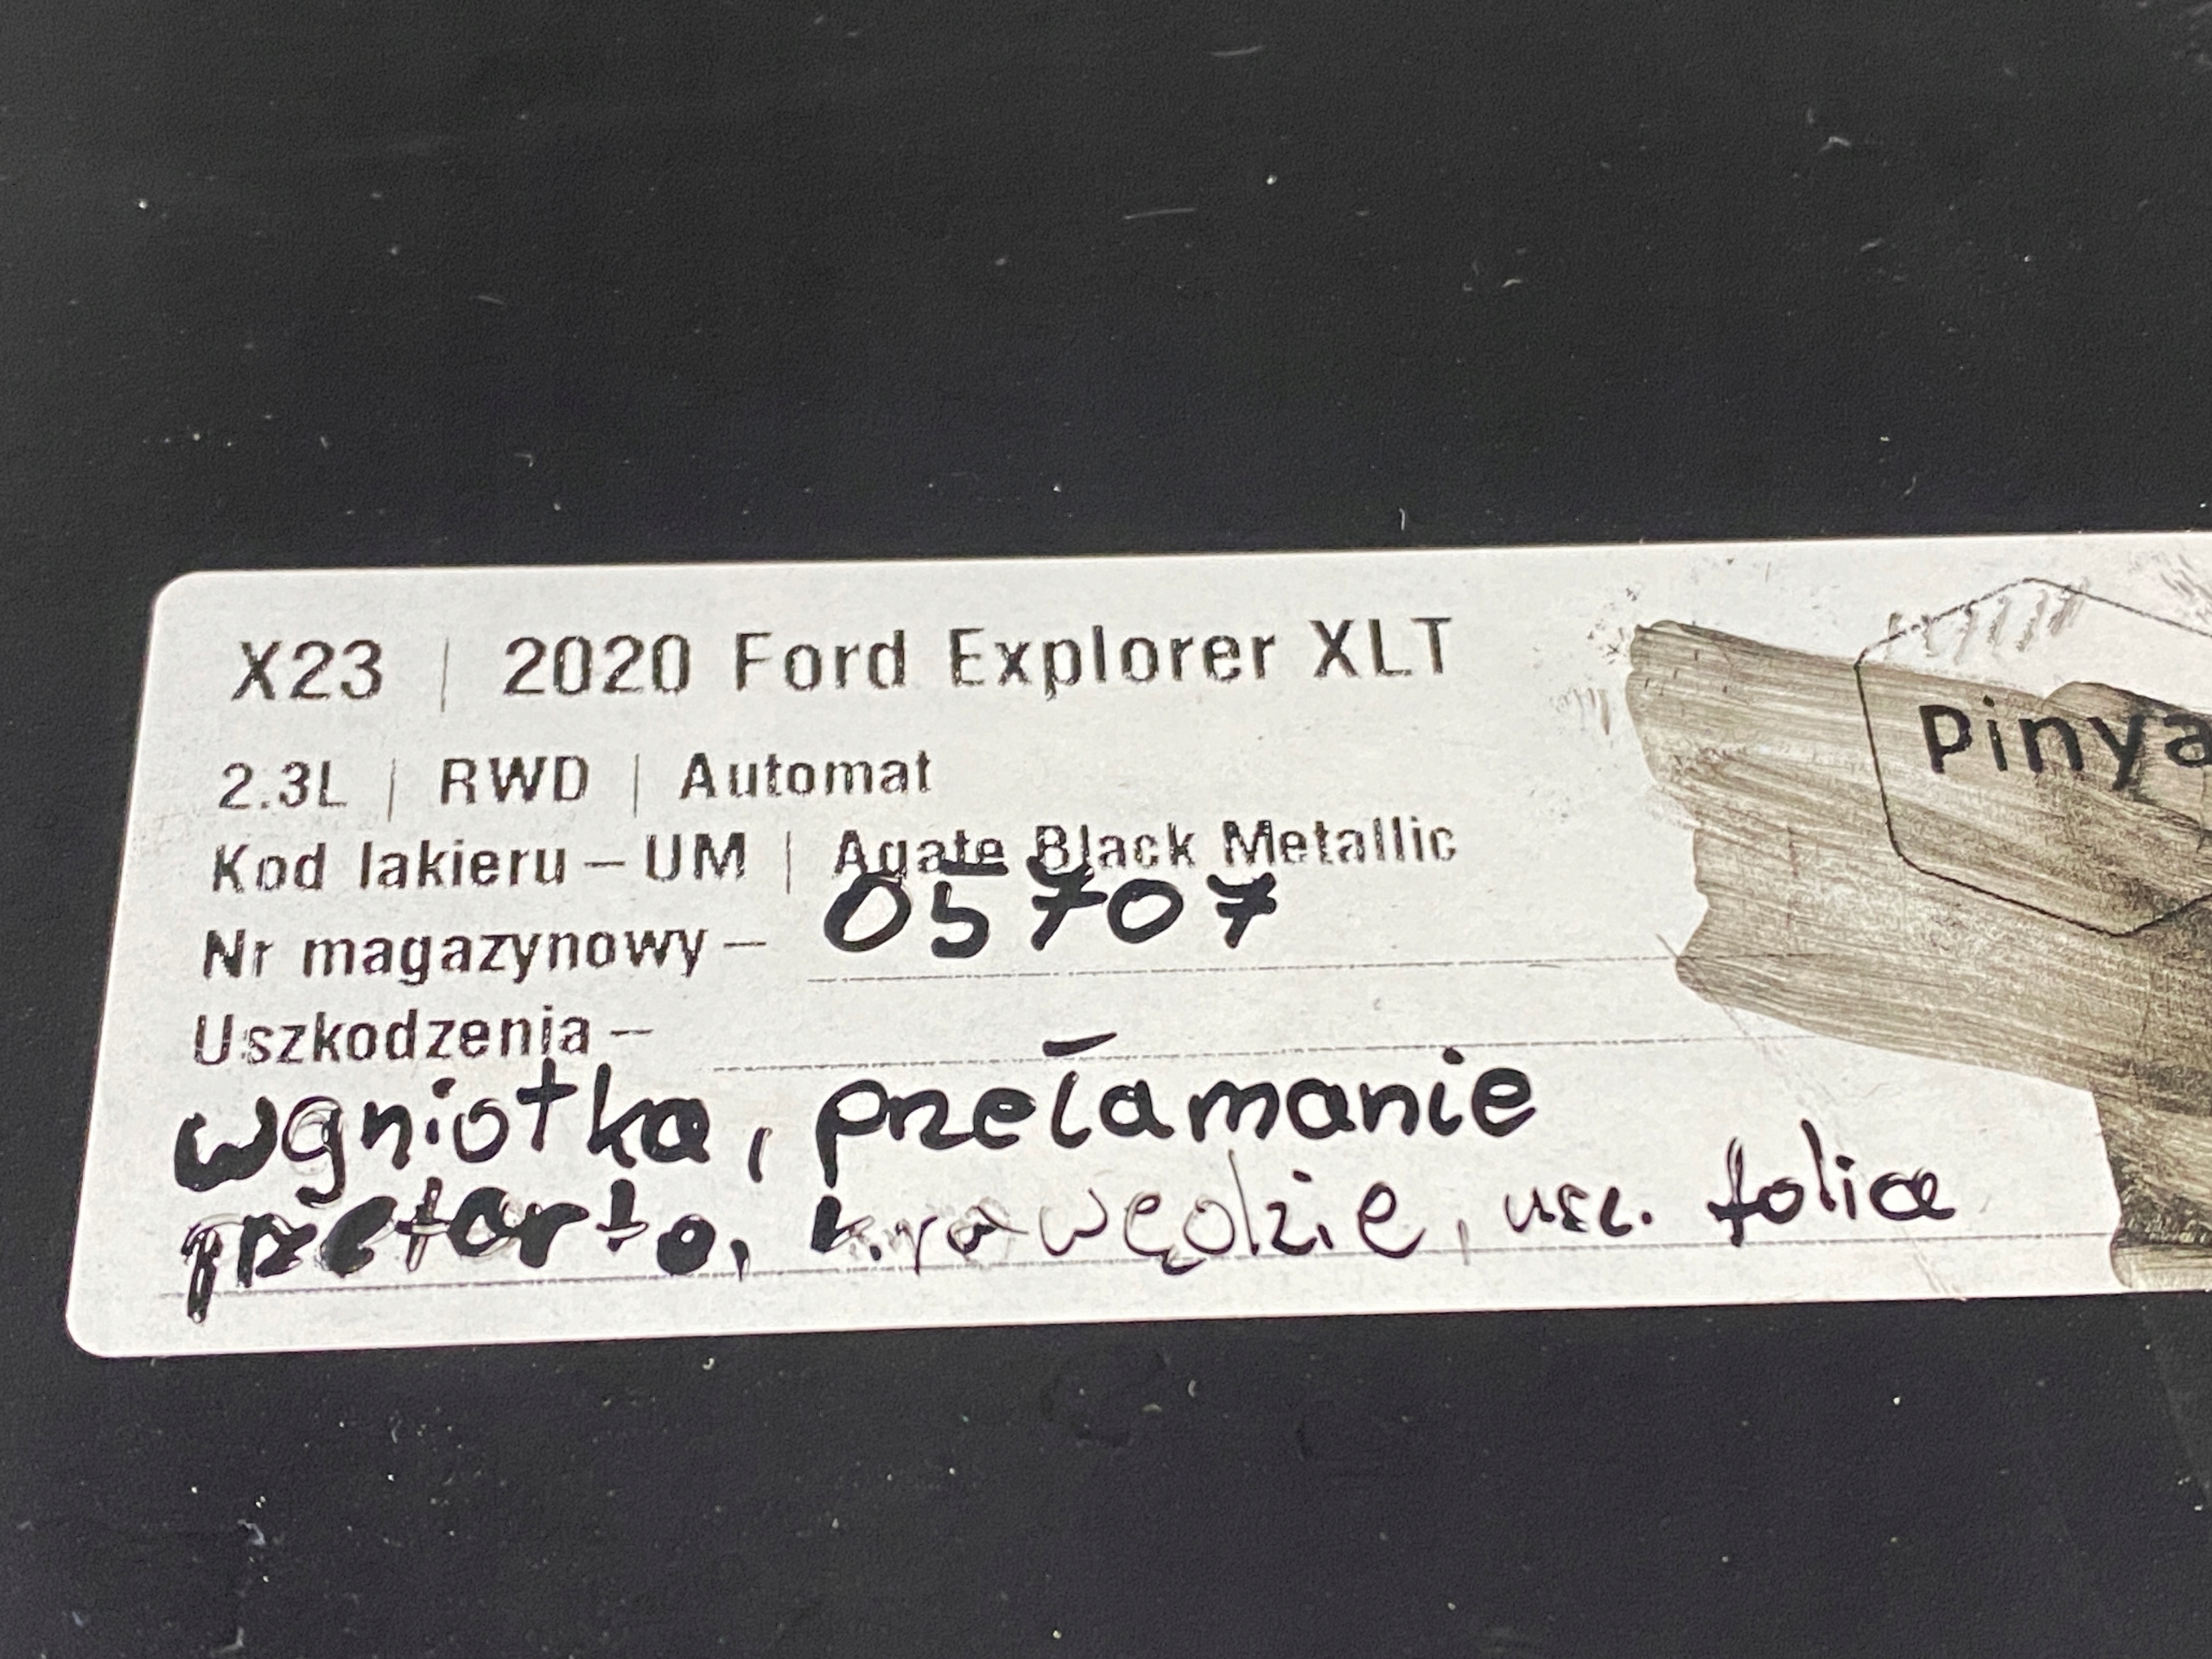 X23 | 2020 Ford Explorer XLT
Pinya
2.3L | RWD | Automat
Kod lakieru – UM | Agate Black Metallic
Nr magazynowy – 05707
Uszkodzenia –
wgniotka, przełamanie
przetarto, krawędzie, usz. folia